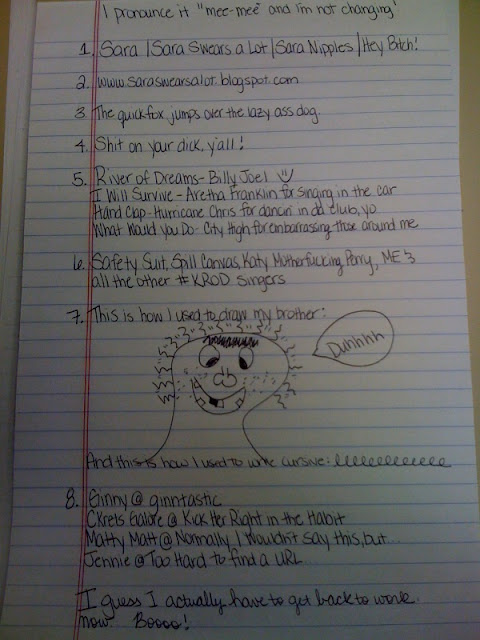 I pronounce it "mee-mee" and i'm not changing
1. Sara | Sara Swears a Lot | Sara Nipples | Hey Bitch!
2. www.saraswearsalot.blogspot.com
3. The quick fox jumps over the lazy ass dog.
4. Shit on your dick, y'all!
5. River of Dreams - Billy Joel
I Will Survive - Aretha Franklin for singing in the car
Hand Clap - Hurricane Chris for dancin' in da club, yo
What Would You Do - City High for embarrassing those around me
6. Safety Suit, Spill Canvas, Katy Motherfucking Perry, ME &
all the other #KROD singers
7. This is how I used to draw my brother:
Duhhhhh
And this is how I used to write cursive: eeeeeeeeeeee
8. Ginny @ ginntastic
CKrets Galore @ Kick Her Right in the Habit
Matty Matt @ Normally I Wouldn't say this, but...
Jennie @ Too Hard to find a URL
I guess I actually have to get back to work
now. Boooo!